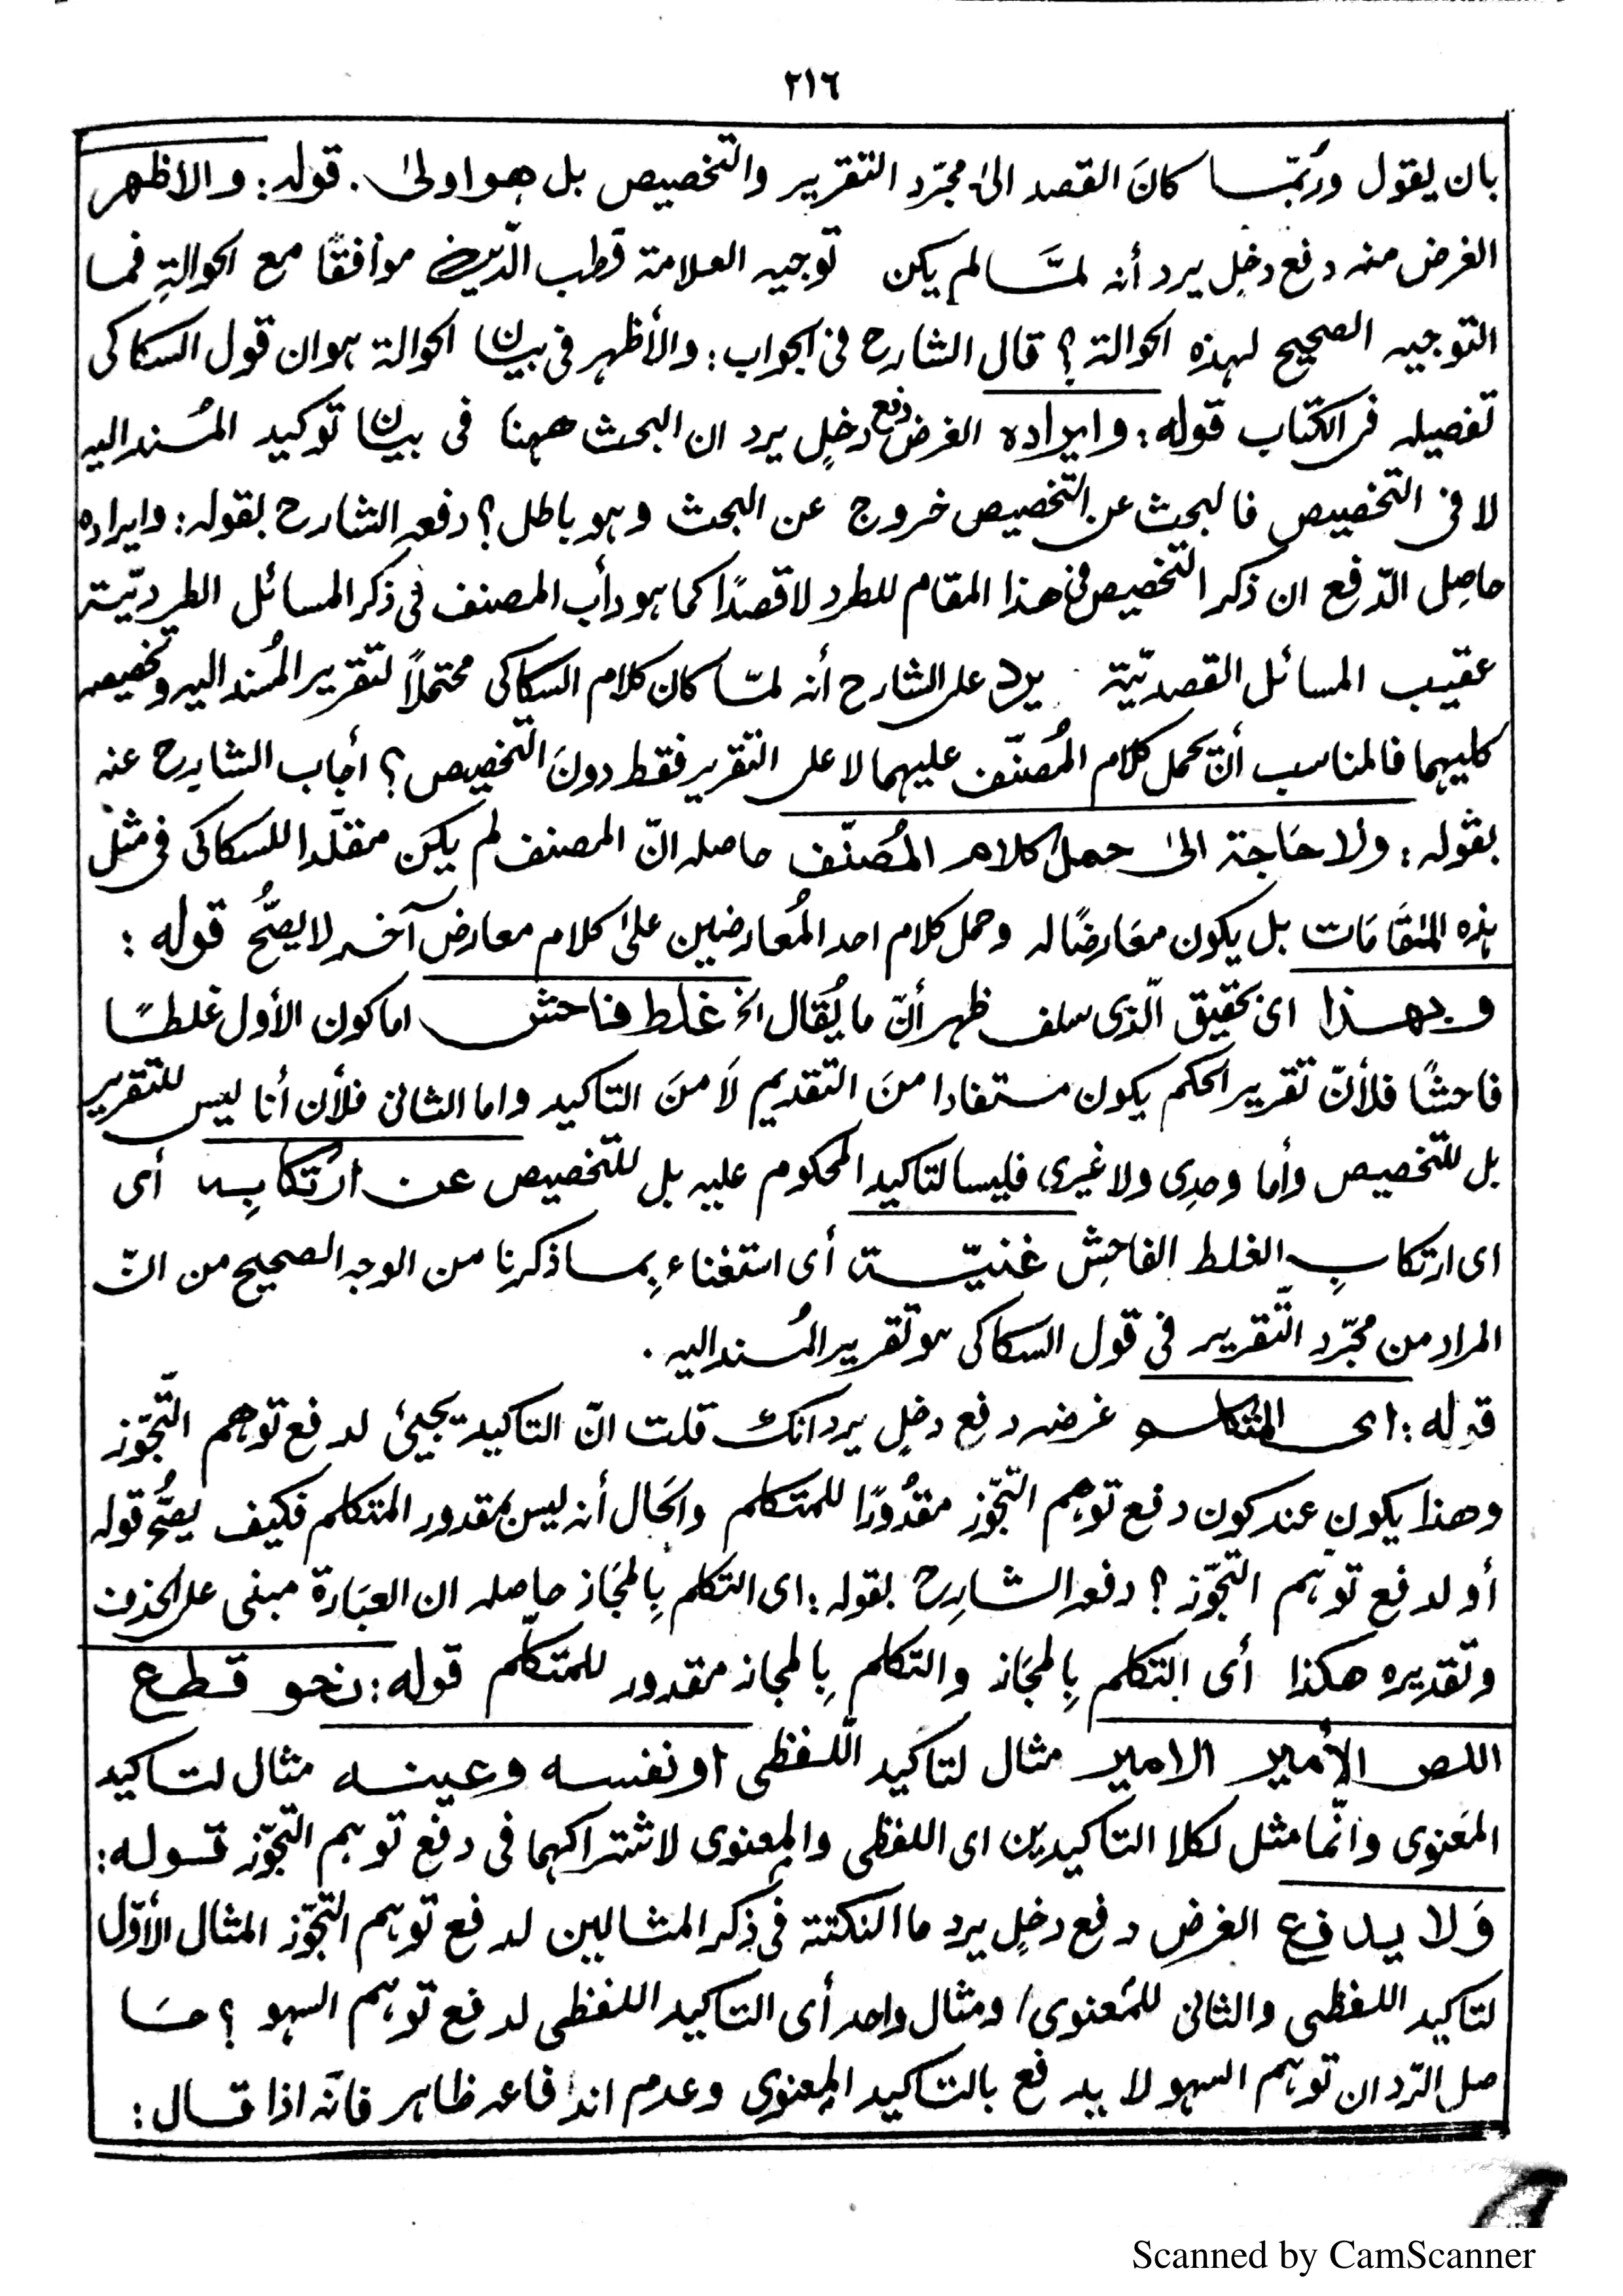 ٢١٦
بان يقول ورُبّما كانَ القصد الى مجرّد التقرير والتخصيص بل هو اولىٰ. قوله: والاظهر
الغرض منه دفع دخل يرد أنه لمَّا لم يكن توجيه العلامة قطب الدّين موافقًا مع الحوالةِ فما
التوجيه الصحيح لهذه الحوالة؟ قال الشارح فى الجواب: والأظهر فى بيان الحوالة هو ان قول السكاكى
تفصيله فى الكتاب قوله: وايراده الغرض دفع دخلٍ يرد ان البحث ههنا فى بيان توكيد المُسند اليه
لا فى التخصيص فالبحث عن التخصيص خروج عن البحث وهو باطل؟ دفعه الشارح بقوله: وايراده
حاصِل الدّفع ان ذكر التخصيص فى هذا المقام للطرد لا قصدًا كما هو دأب المصنف فى ذكر المسائل الطرديّة
عقيب المسائل القصديّة يرد على الشارح أنه لمّا كان كلام السكاكى محتملاً لتقرير المُسند اليه وتخصيصه
كليهما فالمناسب أن يحمل كلام المُصنّف عليهما لا على التقرير فقط دونَ التخصيص؟ أجاب الشارح عنه
بقوله: ولا حَاجة الىٰ حمل كلام المُصَنّف حاصله انّ المصنف لم يكن مقلّدا للسكاكى فى مثل
هذه المقَامَات بل يكون معَارضًا له وحمل كلام احد المُعارضين علىٰ كلام معارض آخر لا يصّحُ قوله:
وبهذا اى تحقيق الّذى سلف ظهر أنّ ما يُقال الخ غلط فاحش اما كون الأول غلطًا
فاحشًا فلأنّ تقرير الحكم يكون مستفادا منَ التقديم لَا منَ التاكيد واما الثانى فلأن أنا ليس للتقرير
بل للتخصيص وأما وحدِى ولا غيرى فليسا لتاكيد المحكوم عليه بل للتخصيص عن ارتكابِه أى
اى ارتكابِ الغلط الفاحِش غنيّة أى استغناء بِما ذكرنا من الوجه الصحيح من انّ
المراد من مجرّد التّقرير فى قول السكاكى هو تقرير المُسند اليه.
قوله: اى المتكلم غرضه دفع دخلٍ يرد انك قلت انّ التاكيد يجيئ لدفع توهم التّجّوز
وهذا يكون عند كون دفع توهم التجّوز مقدُورًا للمتكلم والحَال أنه ليس بمقدور المتكلم فكيف يصّح قوله
أو لدفع توهم التجّوز؟ دفعه الشارِح بقوله: اى التكلم بِالمجَاز حاصله ان العبَارة مبنى على الحذف
وتقديره هكذا أى التكلم بِالمجَاز والتكلم بِالمجاز مقدور للمتكلّم قوله: نحو قطع
اللص الأمير الامير مثال لتاكيد اللّفظى او نفسه وعينه مثال لتاكيد
المعَنوى وانّما مثل لكلا التاكيدين اى اللفظى والمعنوى لاشتراكهما فى دفع توهم التجّوز قوله:
وَلا يدفع الغرض دفع دخلٍ يرد ما النكتة فى ذكر المثالين لدفع توهم التجّوز المثال الأوّل
لتاكيد اللفظى والثانى للمَعنوى/ ومثال واحد أى التاكيد اللفظى لدفع توهم السهو؟ حَا
صل الرّد ان توهم السهو لا يدفع بالتاكيد المعنوى وعدم اندفاعه ظاهر فانّه اذا قال:
Scanned by CamScanner